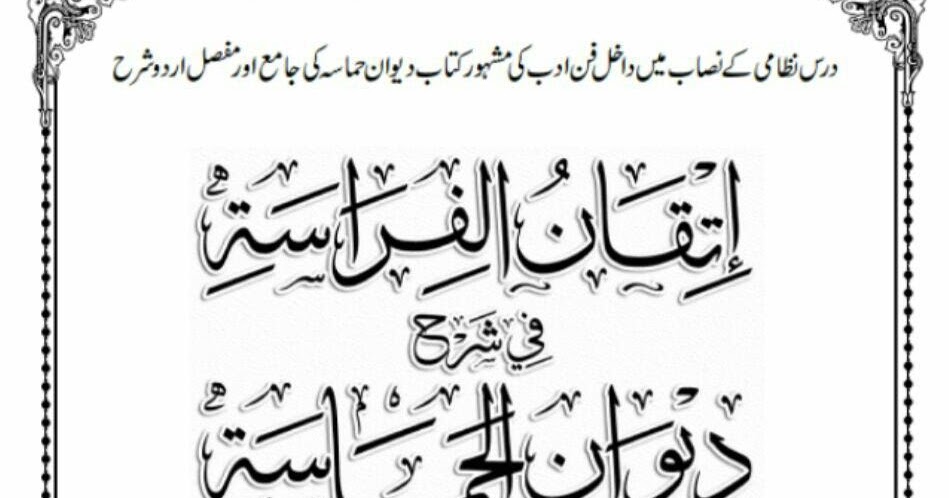 درس نظامی کے نصاب میں داخل فن ادب کی مشہور کتاب دیوان حماسہ کی جامع اور مفصل اردو شرح
إِتقَانُ الفِرَاسَةِ
فِي شَرْح
دِيوَان الحَمَاسَة